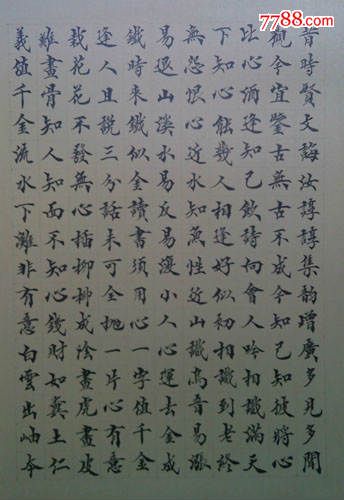 7788.com
昔時賢文誨汝諄諄集韵增廣多見多聞
觀今宜鑒古無古不成今知己知彼將心
比心酒逢知己飲詩向會人吟相識滿天
下知心能幾人相逢好似初相識到老終
無怨恨心近水知魚性近山識鳥音易漲
易退山溪水易反易覆小人心運去金成
鐵時來鐵似金讀書須用心一字值千金
逢人且説三分話未可全拋一片心有意
栽花花不發無心插柳柳成陰畫虎畫皮
難畫骨知人知面不知心錢財如糞土仁
義值千金流水下灘非有意白雲出岫本